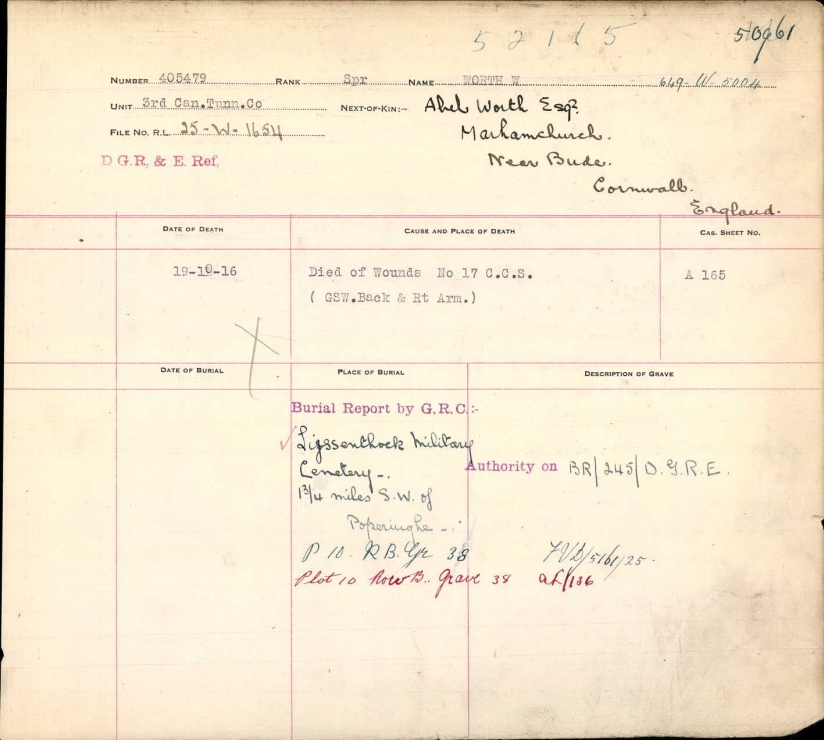 52115
50961
NUMBER 405479 RANK Spr NAME WORTH W 649-W-5004
UNIT 3rd Can.Tunn.Co NEXT-OF-KIN:- Abel Worth Esqr.
FILE NO. R.L. 25-W-1654 Marhamchurch.
D G.R, & E. Ref, Near Bude.
Cornwall.
England.
DATE OF DEATH CAUSE AND PLACE OF DEATH CAS. SHEET NO.
19-10-16 Died of Wounds No 17 C.C.S. A 165
( GSW.Back & Rt Arm.)
DATE OF BURIAL PLACE OF BURIAL DESCRIPTION OF GRAVE
Burial Report by G.R.C:-
Lijssenthock Military
Cemetery-. Authority on BR/245/D.G.R.E.
1 3/4 miles S.W. of
Poperinghe -.
P 10. R B. Gr 38
Plot 10 Row B.. Grave 38